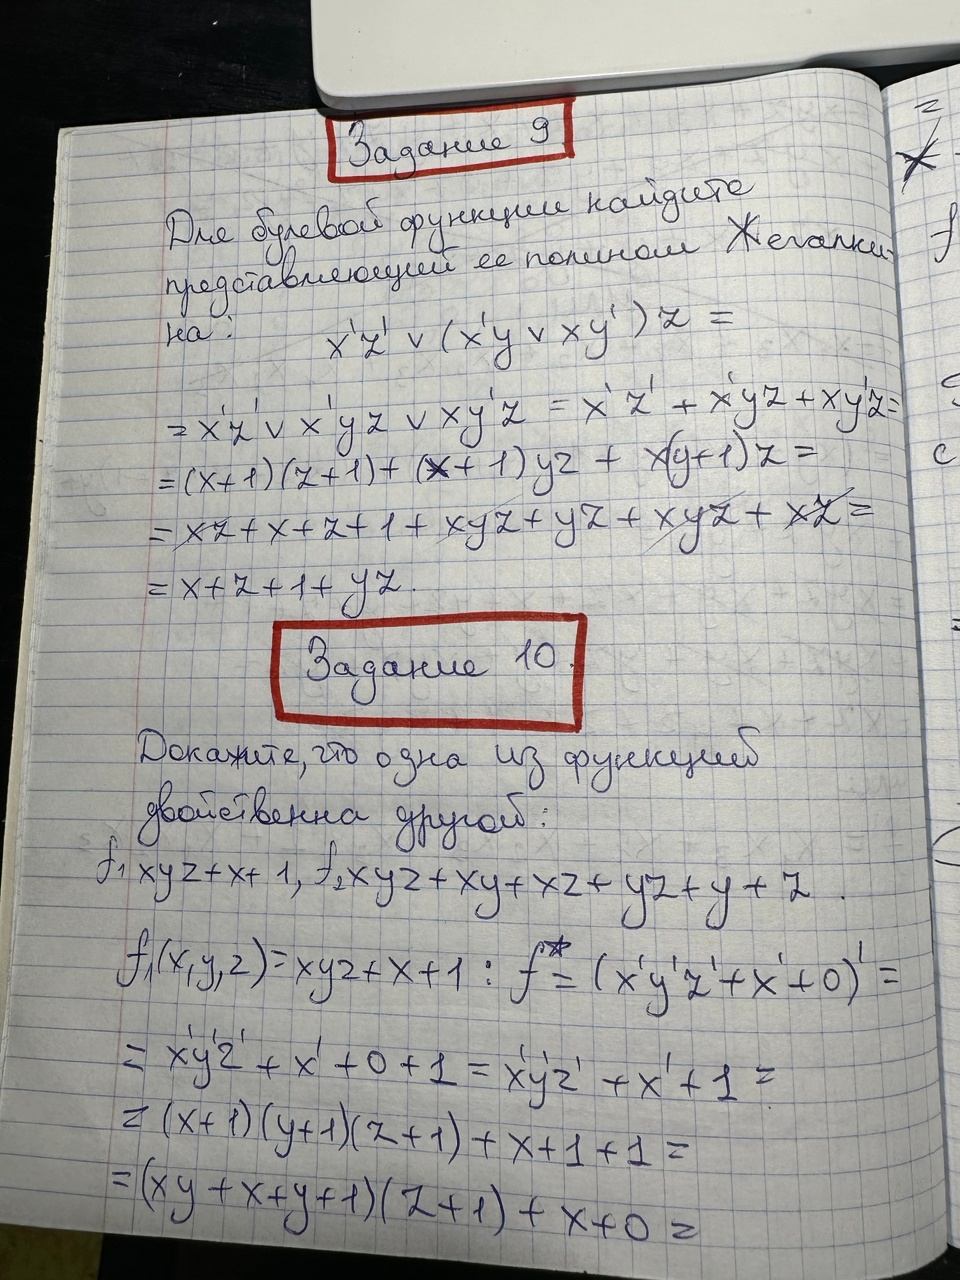 Задание 9
Для булевой функции найдите
представляющий ее полином Жегалки-
на: x'z' ∨ (x'y ∨ xy')z =
= x'z' ∨ x'yz ∨ xy'z = x'z' + x'yz + xy'z =
= (x+1)(z+1) + (x+1)yz + x(y+1)z =
= xz + x + z + 1 + xyz + yz + xyz + xz =
= x + z + 1 + yz.
Задание 10
Докажите, что одна из функций
двойственна другой:
f₁ xyz + x + 1, f₂ xyz + xy + xz + yz + y + z.
f₁(x,y,z) = xyz + x + 1 : f* = (x'y'z' + x' + 0)' =
= x'y'z' + x' + 0 + 1 = x'y'z' + x' + 1 =
= (x+1)(y+1)(z+1) + x + 1 + 1 =
= (xy + x + y + 1)(z+1) + x + 0 =